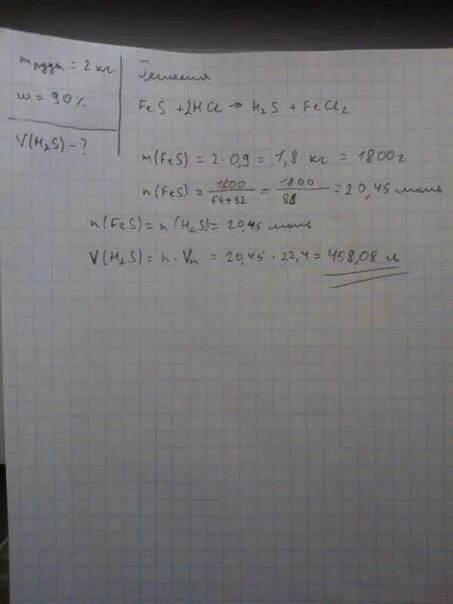 m руды = 2 кг
w = 90%
V(H₂S) - ?
Решения
FeS + 2HCl → H₂S + FeCl₂
m(FeS) = 2·0,9 = 1,8 кг = 1800 г
n(FeS) = 1800/56+32 = 1800/88 = 20,45 моль
n(FeS) = n(H₂S) = 20,45 моль
V(H₂S) = n·Vₘ = 20,45·22,4 = 458,08 л